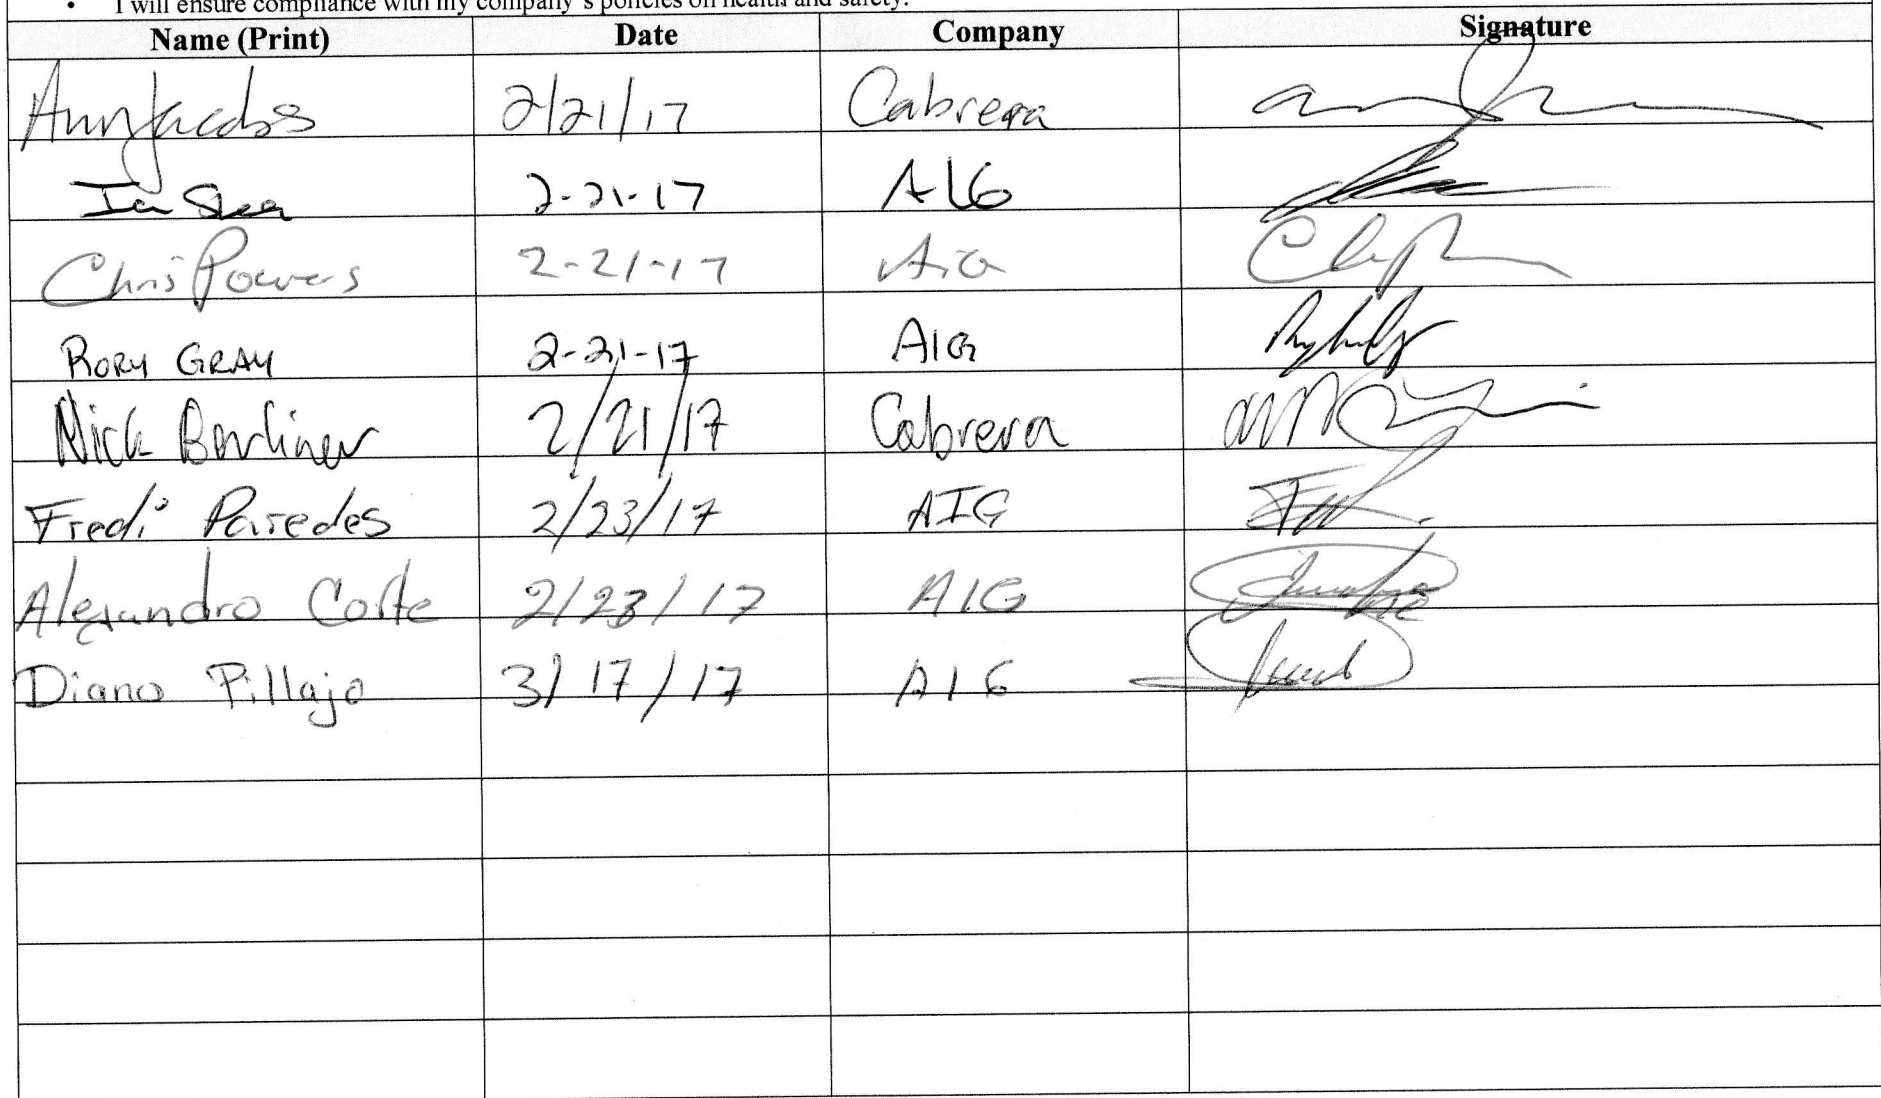 • I will ensure compliance with my company's policies on health and safety.
Name (Print) Date Company Signature
Ann Jacobs 2/21/17 Cabrera
2-21-17 AIG
Chris Powers 2-21-17 AiG
RORY GRAY 2-21-17 AIG
Nick Berliner 2/21/17 Cabrera
Fredi Paredes 2/23/17 AIG
Alejandro Corte 2/23/17 AIG
Diano Pillajo 3/17/17 AIG